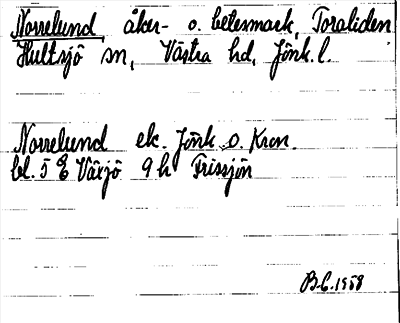 Norrelund, åker- o. betesmark, Toraliden
Hultsjö sn, Västra hd, Jönk. l.
Norrelund ek. Jönk. o. Kron.
bl. 5 E Växjö 9 h Frissjön
B.C. 1958